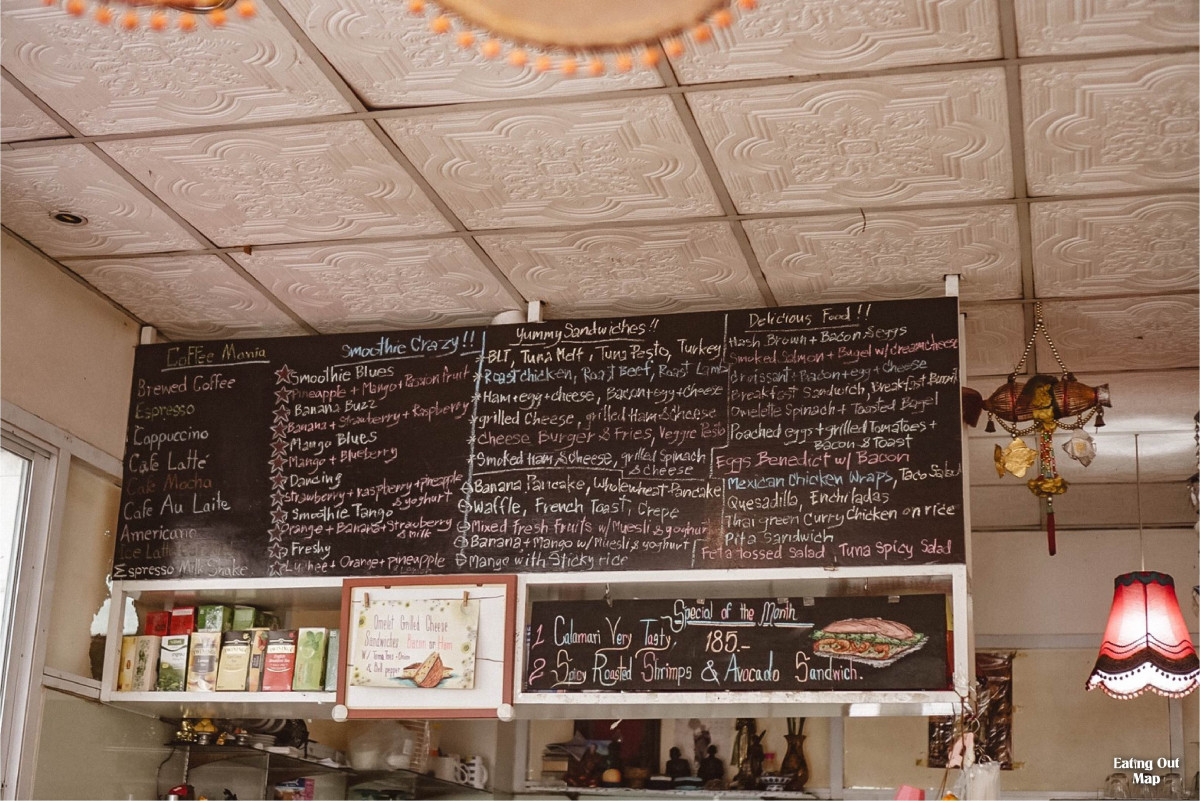 Coffee Mania
Brewed Coffee
Espresso
Cappuccino
Cafe Latté
Cafe Mocha
Cafe Au Laite
Americano
Ice Latte
Espresso Milk Shake
Smoothie Crazy!!
Smoothie Blues
Pineapple + Mango + Passion fruit
Banana Buzz
Banana + Strawberry + Raspberry
Mango Blues
Mango + Blueberry
Dancing
Strawberry + Raspberry + pineapple
& yoghurt
Smoothie Tango
Orange + Banana + Strawberry
& milk
Freshy
Lychee + Orange + pineapple
Yummy Sandwiches!!
BLT, Tuna Melt, Tuna Pesto, Turkey
Roast chicken, Roast Beef, Roast Lamb
Ham + egg + cheese, Bacon + egg + cheese
grilled Cheese, grilled Ham & cheese
cheese Burger & Fries, Veggie Pesto
Smoked Ham & Cheese, grilled Spinach
& cheese
Banana Pancake, Wholewheat Pancake
Waffle, French Toast, Crepe
Mixed fresh Fruits w/ Muesli & yoghurt
Banana + Mango w/ Muesli & yoghurt
Mango with Sticky rice
Delicious Food!!
Hash Brown + Bacon & eggs
Smoked Salmon + Bagel w/ creamcheese
Croissant + Bacon + egg + cheese
Breakfast Sandwich, Breakfast Burrito
Omelette Spinach + Toasted Bagel
Poached eggs + grilled Tomatoes +
Bacon & Toast
Eggs Benedict w/ Bacon
Mexican Chicken Wraps, Taco Salad
Quesadilla, Enchiladas
Thai green Curry Chicken on rice
Pita Sandwich
Feta Tossed Salad, Tuna Spicy Salad
Omelet Grilled Cheese
Sandwiches Bacon or Ham
& Bell pepper
Special of the Month
1 Calamari Very Tasty 185.-
2 Spicy Roasted Shrimps & Avocado Sandwich.
Eating Out
Map